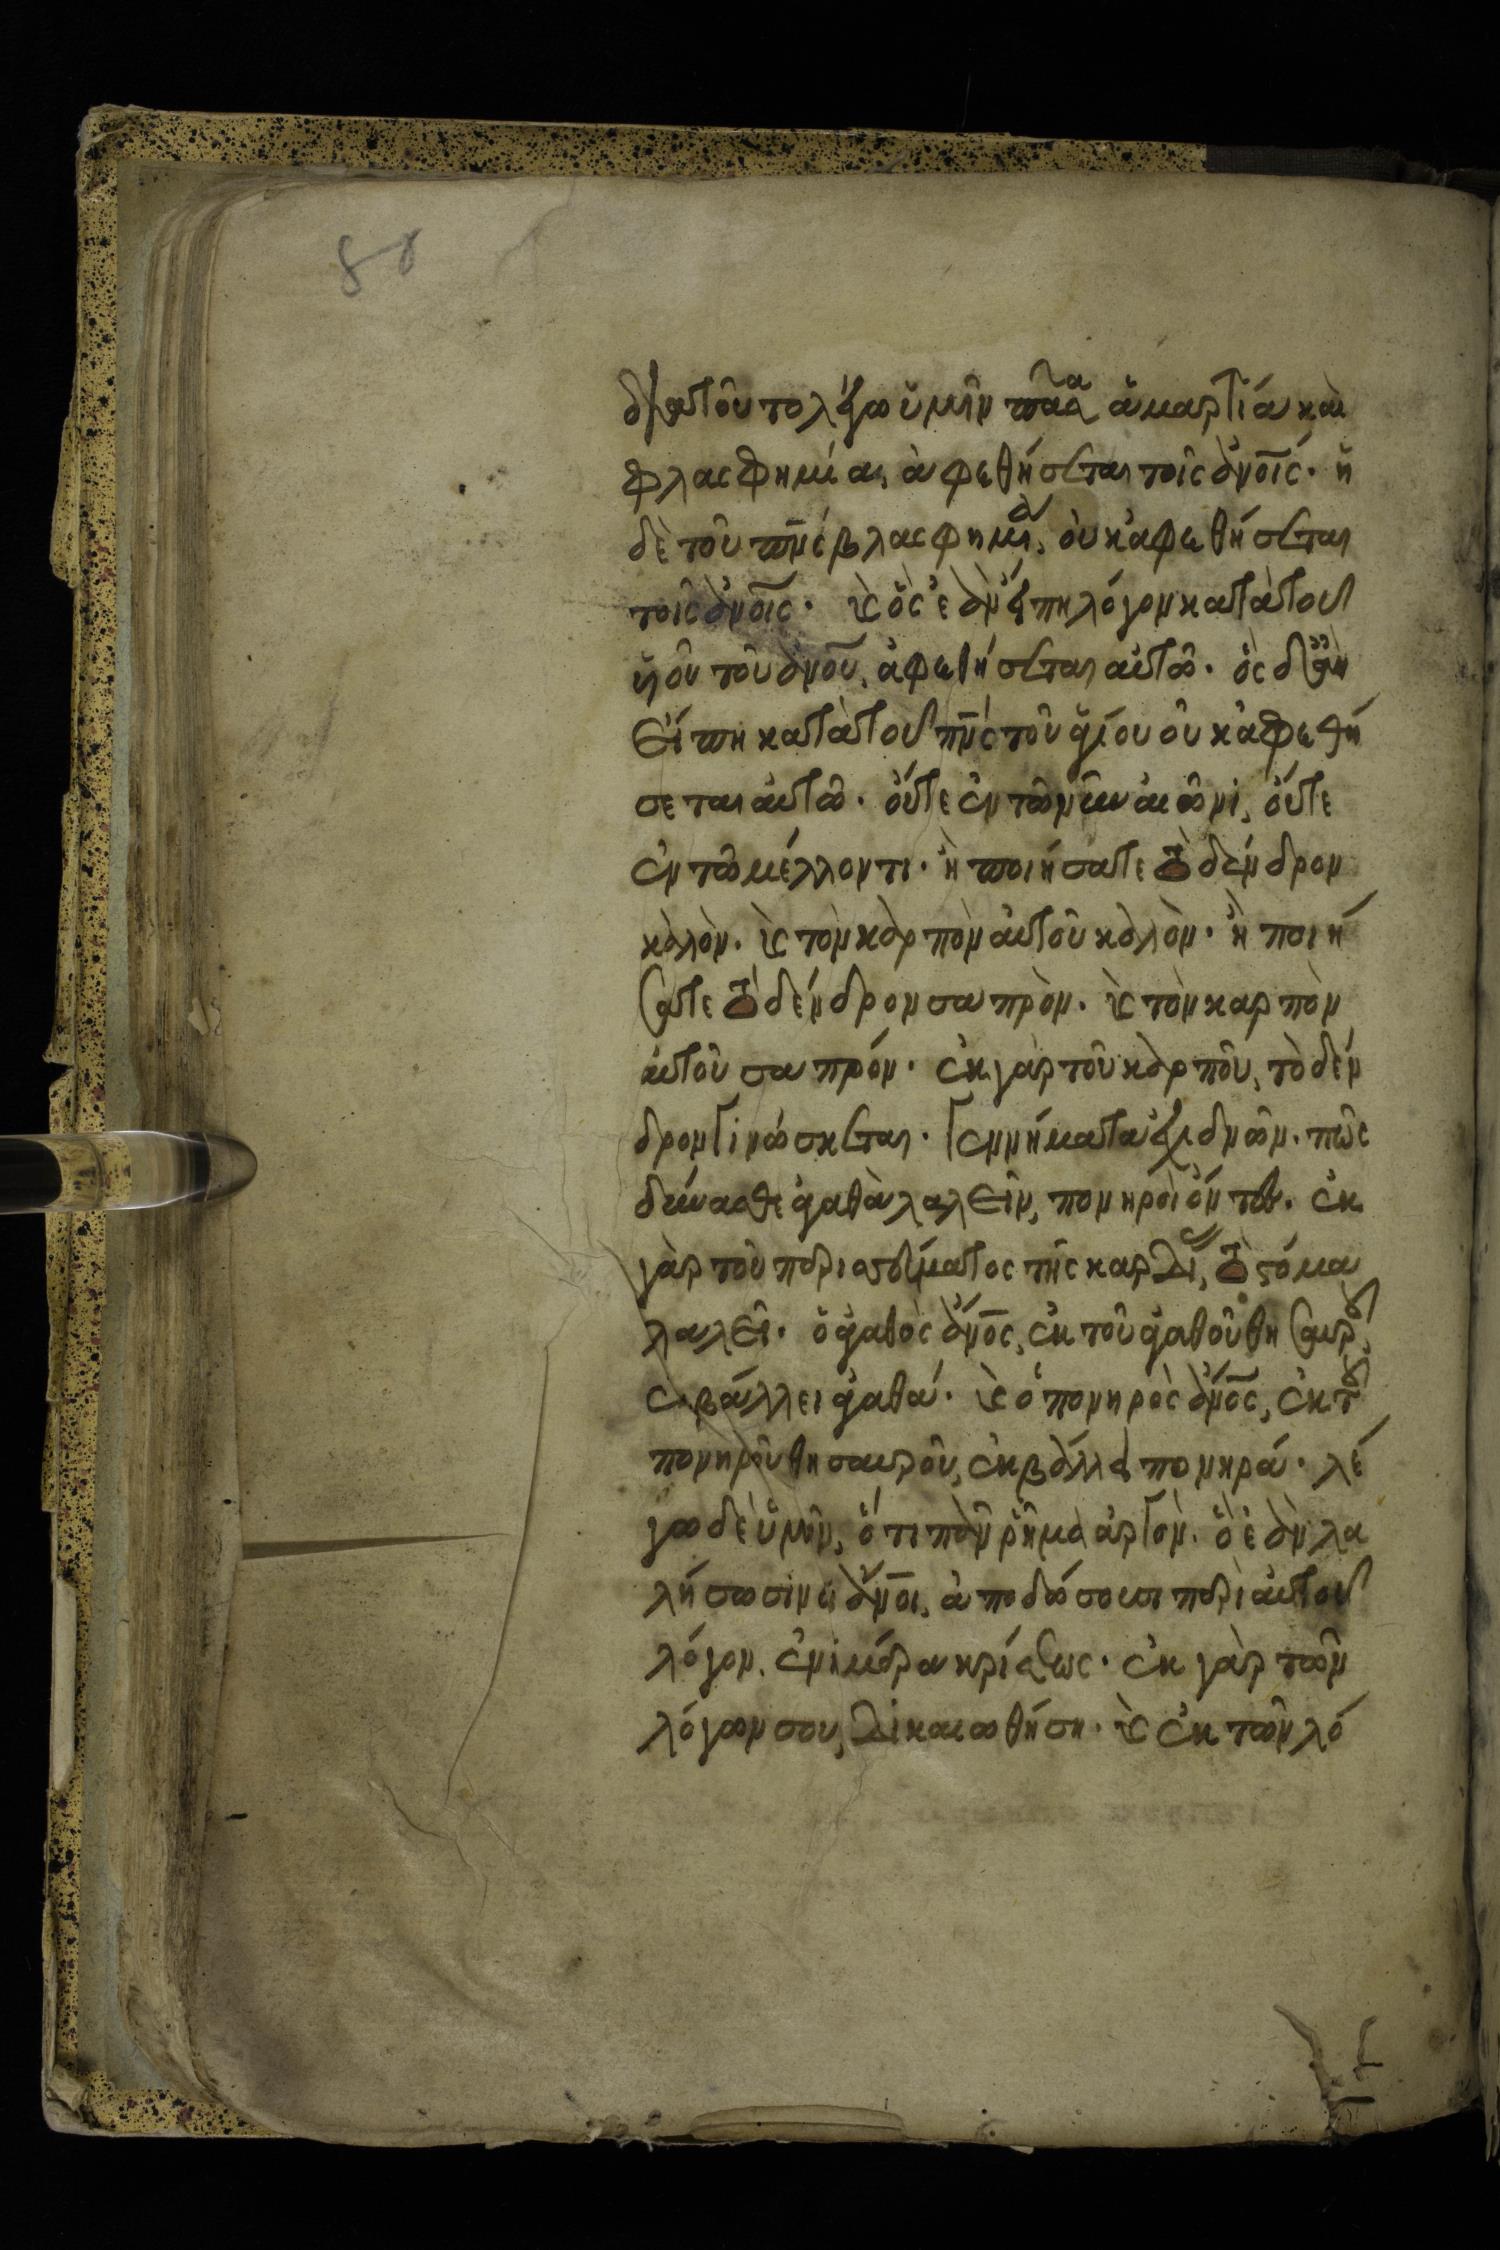 διατοῦτο λέγω ὑμῖν πᾶσα ἁμαρτία καὶ
βλασφημία, ἀφεθήσεται τοῖς ἀνοις· ἡ
δὲ τοῦ πνς βλασφημία, οὐκ ἀφεθήσεται
τοῖς ἀνοις· κ ὃς ἐὰν εἴπη λόγον κατὰ τοῦ
υἱοῦ τοῦ ἀνου, ἀφεθήσεται αὐτῶ· ὃς δ' ἂν
εἴπη κατὰ τοῦ πνς τοῦ ἁγίου οὐκ ἀφεθή
σεται αὐτῶ· οὔτε ἐν τῶ νῦν αἰῶνι, οὔτε
ἐν τῶ μέλλοντι· ἢ ποιήσατε τὸ δένδρον
καλὸν· κ τὸν καρπὸν αὐτοῦ καλὸν· ἢ ποιή
σατε τὸ δένδρον σαπρὸν· κ τὸν καρπὸν
αὐτοῦ σαπρόν· ἐκ γὰρ τοῦ καρποῦ, τὸ δέν
δρον γινώσκεται· γεννήματα ἐχιδνῶν· πῶς
δύνασθε ἀγαθὰ λαλεῖν, πονηροὶ ὄντες· ἐκ
γὰρ τοῦ περισσεύματος τῆς καρδίας, τὸ στόμα
λαλεῖ· ὁ ἀγαθὸς ἀνος, ἐκ τοῦ ἀγαθοῦ θησαυροῦ,
ἐκβάλλει ἀγαθά· κ ὁ πονηρὸς ἀνος, ἐκ τοῦ
πονηροῦ θησαυροῦ, ἐκβάλλει πονηρά· λέ
γω δὲ ὑμῖν, ὅτι πᾶν ῥῆμα ἀργὸν· ὃ ἐὰν λα
λήσωσιν οἱ ἀνοι, ἀποδώσουσι περὶ αὐτοῦ
λόγον, ἐν ἡμέρα κρίσεως· ἐκ γὰρ τῶν
λόγων σου, δικαιωθήση· κ ἐκ τῶν λό